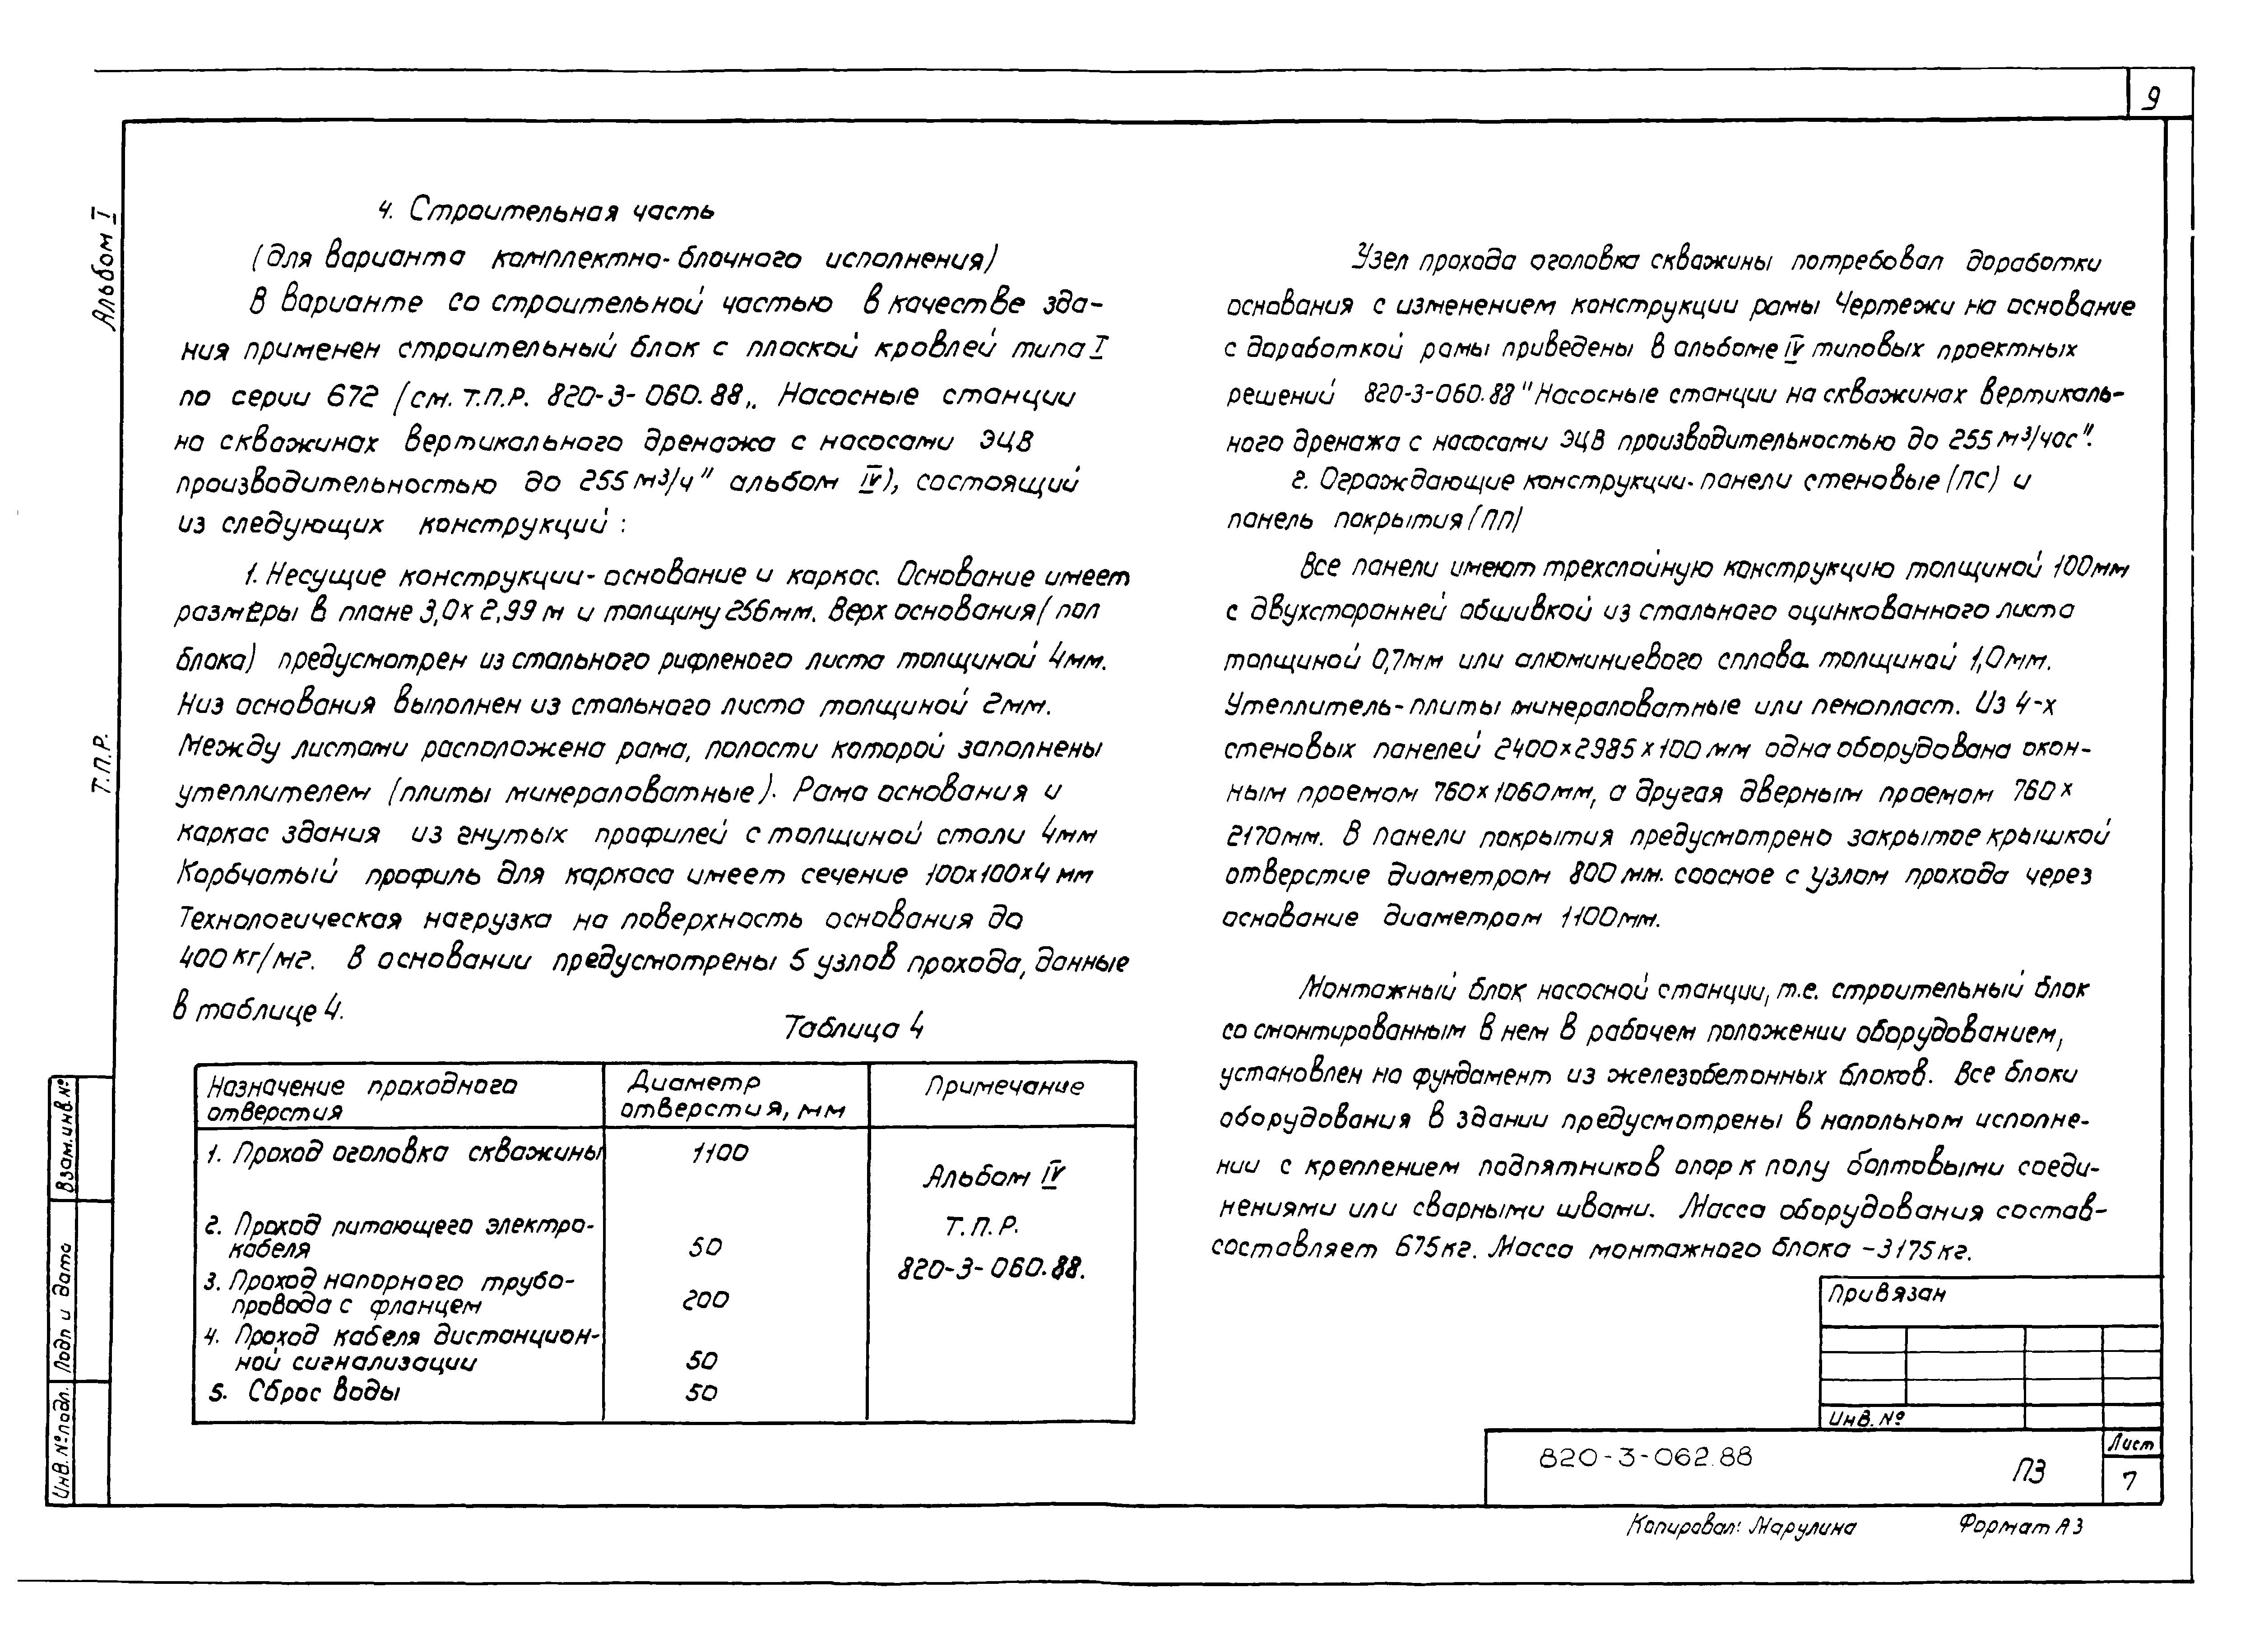 9
Альбом I
Т.П.Р.
4. Строительная часть
(для варианта комплектно-блочного исполнения)
В варианте со строительной частью в качестве зда-
ния применен строительный блок с плоской кровлей типа I
по серии 672 (см. Т.П.Р. 820-3-060.88 „Насосные станции
на скважинах вертикального дренажа с насосами ЭЦВ
производительностью до 255 м³/ч" альбом IV), состоящий
из следующих конструкций:
1. Несущие конструкции-основание и каркас. Основание имеет
размеры в плане 3,0×2,99 м и толщину 256мм. Верх основания (пол
блока) предусмотрен из стального рифленого листа толщиной 4мм.
Низ основания выполнен из стального листа толщиной 2мм.
Между листами расположена рама, полости которой заполнены
утеплителем (плиты минераловатные). Рама основания и
каркас здания из гнутых профилей с толщиной стали 4мм
Карбчатый профиль для каркаса имеет сечение 100×100×4 мм
Технологическая нагрузка на поверхность основания до
400 кг/м2. В основании предусмотрены 5 узлов прохода, данные
в таблице 4.
Таблица 4
Назначение проходного отверстия | Диаметр отверстия, мм | Примечание
1. Проход оголовка скважины 1100
Альбом IV
2. Проход питающего электро-
кабеля 50
Т.П.Р.
3. Проход напорного трубо-
провода с фланцем 200
820-3-060.88.
4. Проход кабеля дистанцион-
ной сигнализации 50
5. Сброс воды 50
Узел прохода оголовка скважины потребовал доработки
основания с изменением конструкции рамы Чертежи на основание
с доработкой рамы приведены в альбоме IV типовых проектных
решений 820-3-060.88 "Насосные станции на скважинах вертикаль-
ного дренажа с насосами ЭЦВ производительностью до 255 м³/час".
2. Ограждающие конструкции-панели стеновые (ПС) и
панель покрытия (ПП)
Все панели имеют трехслойную конструкцию толщиной 100мм
с двухсторонней обшивкой из стального оцинкованного листа
толщиной 0,7мм или алюминиевого сплава толщиной 1,0мм.
Утеплитель-плиты минераловатные или пенопласт. Из 4-х
стеновых панелей 2400×2985×100 мм одна оборудована окон-
ным проемом 760×1060мм, а другая дверным проемом 760×
2170мм. В панели покрытия предусмотрено закрытое крышкой
отверстие диаметром 800 мм. соосное с узлом прохода через
основание диаметром 1100мм.
Монтажный блок насосной станции, т.е. строительный блок
со смонтированным в нем в рабочем положении оборудованием,
установлен на фундамент из железобетонных блоков. Все блоки
оборудования в здании предусмотрены в напольном исполне-
нии с креплением подпятников опор к полу болтовыми соеди-
нениями или сварными швами. Масса оборудования состав-
составляет 675кг. Масса монтажного блока -3175кг.
Привязан
Инв. №
820-3-062.88
ПЗ
Лист
7
Взам.инв.№
Подп и дата
Инв.№подл.
Копировал: Марулина
Формат А3